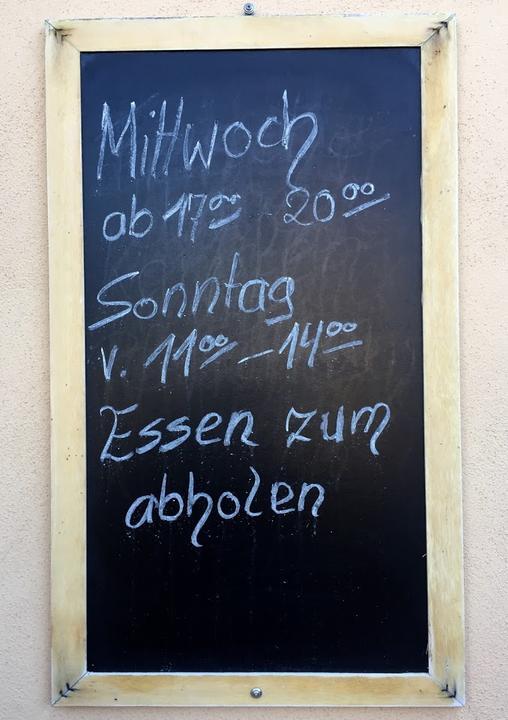 Mittwoch
ab 1700 2000
Sonntag
v. 1100 - 1400
Essen zum
abholen